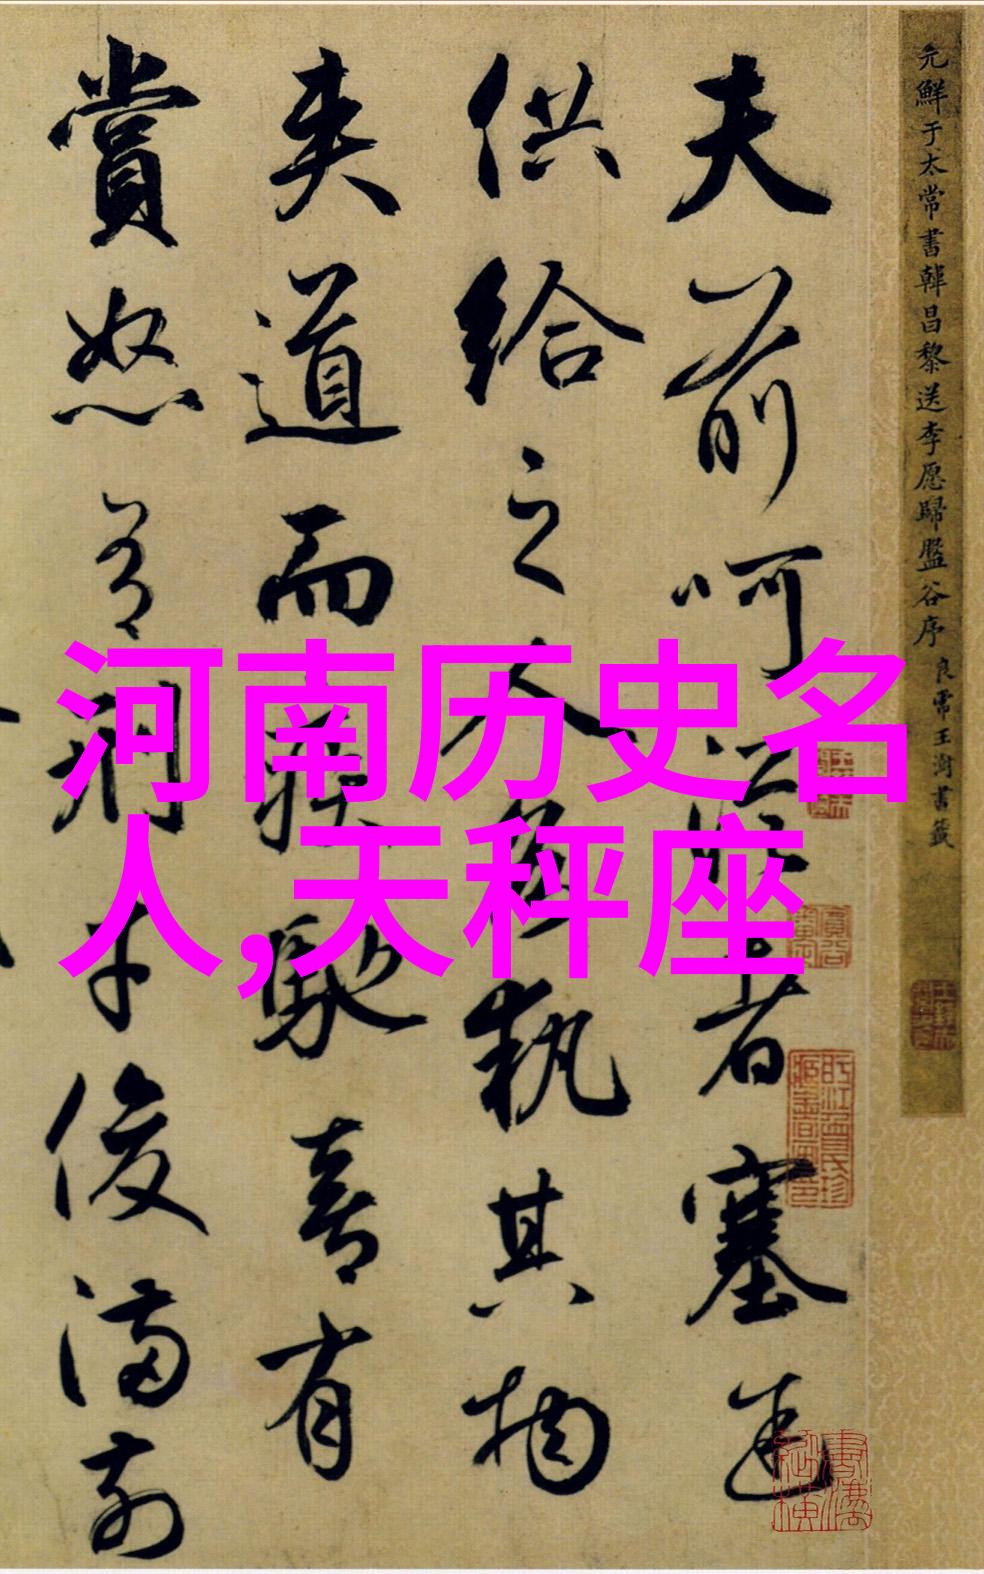 元鮮于太常書韓昌黎送李愿歸盤谷序 良常王澍書籤
夫前呵從者塞途
供給之人各執其物
夹道而疾馳喜有
賞怒有刑才俊滿前
河南历史名
人,天秤座